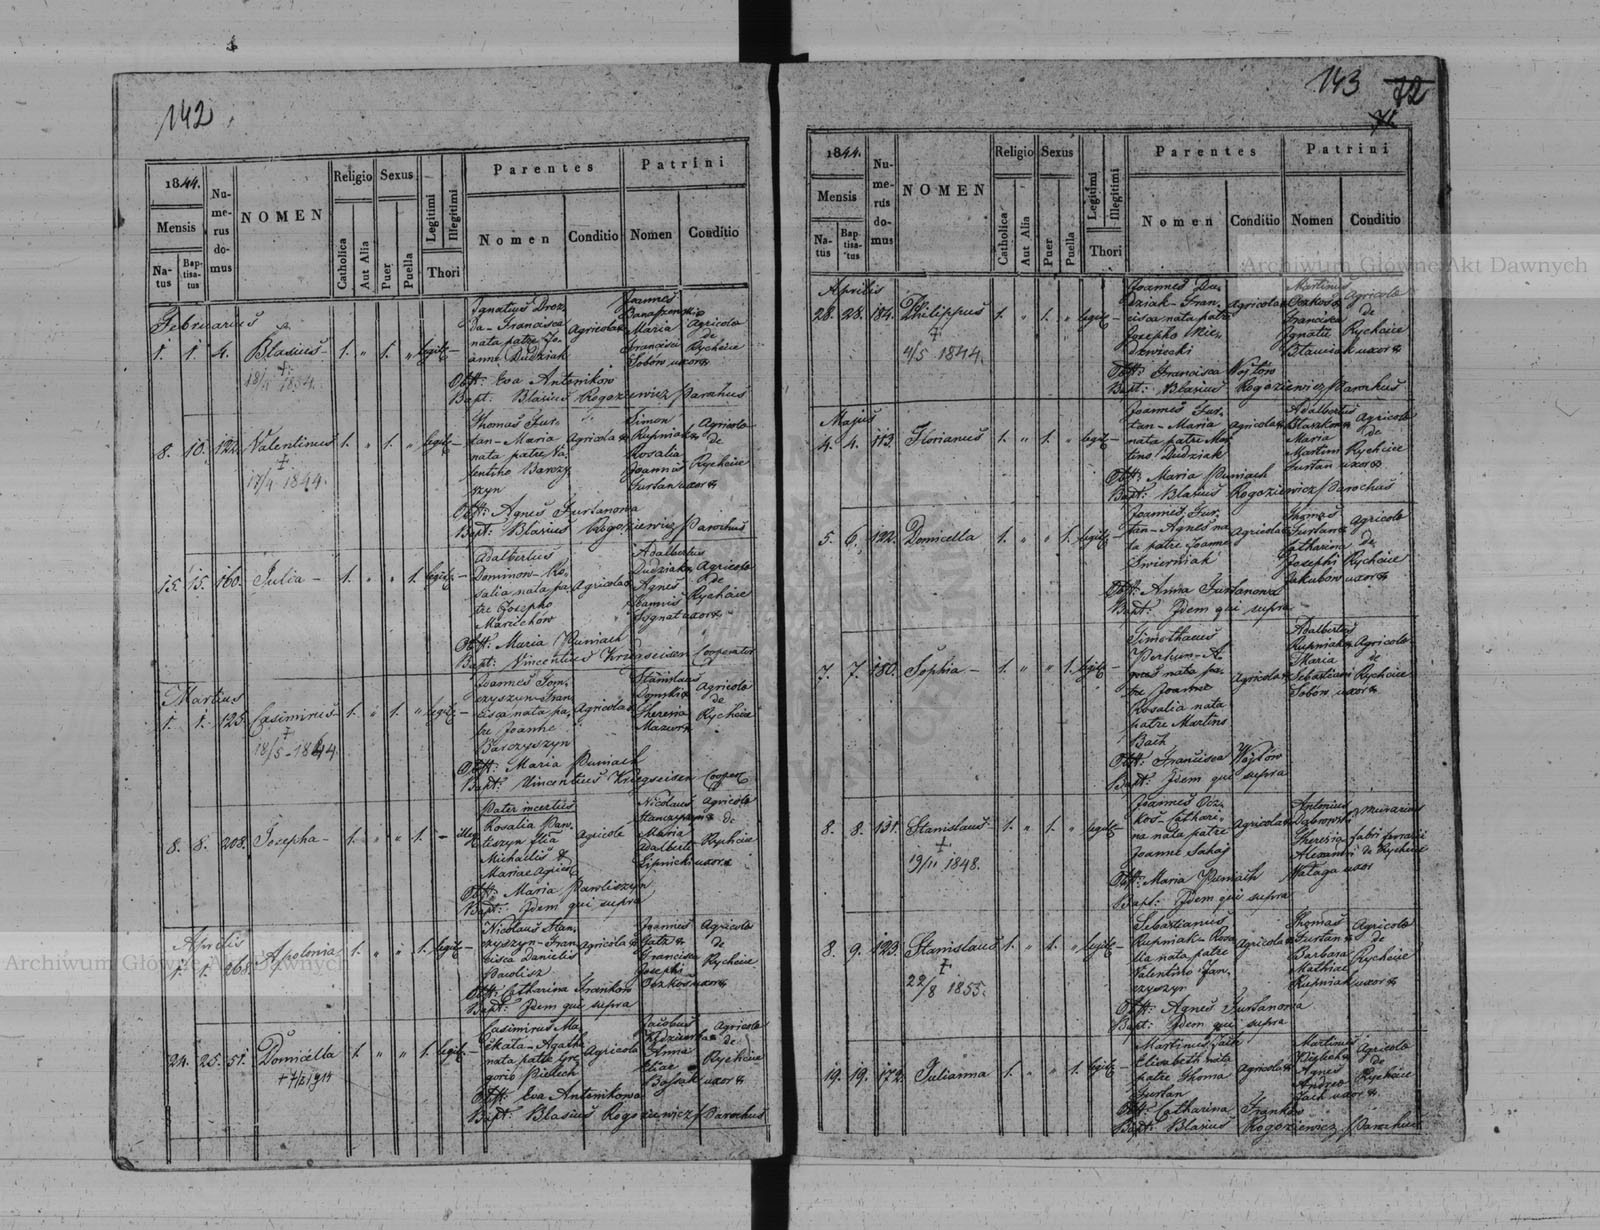 142
1844.
Mensis
Na-
tus
Bap-
tisa-
tus
Nu-
me-
rus
do-
mus
NOMEN
Religio
Catholica
Aut Alia
Sexus
Puer
Puella
Legitimi
Illegitimi
Thori
Parentes
Nomen
Conditio
Patrini
Nomen
Conditio
Februarius
1. 1. 4. Blasius 1. " 1. " legit.
Ignatius Droz-
da - Francisca
nata patre Jo-
anne Dudziak
Agricola
Joannes
Maria
Francisci
Sobów uxor
Agricola
de
Rychcice
Obst: Eva Antonikow
Bapt: Blasius Rogoziewicz Parochus
8. 10. 122. Valentinus 1. " 1. " legit.
17/4 1844.
Thomas Fur-
tan - Maria
nata patre Va-
lentino Barczy-
szyn
Agricola
Simon
Rupniak
Rosalia
Joannis
Furtan uxor
Agricola
de
Rychcice
Obst: Agnes Furtanowa
Bapt: Blasius Rogoziewicz Parochus
15. 15. 160. Julia - 1. " " 1. legit.
Adalbertus
Dominow - Ro-
salia nata pa-
tre Josepho
Marichów
Agricola
Adalbertus
Dudziak
Agnes
Joannis
Sygnat uxor
Agricola
de
Rychcice
Obst: Maria Puniach
Bapt: Vincentius Kriegseisen Cooperator
Martius
1. 1. 125. Casimirus 1. " 1. " legit.
18/5 - 1844.
Joannes Jan-
czyszyn - Fran-
cisca nata pa-
tre Joanne
Barczyszyn
Agricola
Stanislaus
Theresia
Mazur
Agricola
de
Rychcice
Obst: Maria Puniach
Bapt: Vincentius Kriegseisen Cooper
8. 8. 208. Josepha - 1. " " 1. - illeg.
Pater incertus
Rosalia Paw-
liszyn filia
Michaelis &
Mariae
Agricola
Nicolaus
Maria
Adalberti
Lipnicki uxor
Agricola
de
Rychcice
Obst: Maria Pawliszyn
Bapt: Idem qui supra
Aprilis
1. 1. 268. Apolonia 1. " " 1. legit.
Nicolaus Stan-
czyszyn - Fran-
cisca Danielis
Pawlisz
Agricola
Joannes
Francisca
Josephi
Oczkos uxor
Agricola
de
Rychcice
Obst: Catharina Franków
Bapt: Idem qui supra
24. 25. 51. Domicella 1. " " 1. legit.
Casimirus Ma-
ckata - Agatha
nata patre Gre-
gorio Pielech
Agricola
Jacobus
Anna
Eliae
uxor
Agricola
de
Rychcice
Obst: Eva Antonikowa
Bapt: Blasius Rogoziewicz Parochus
143
72
71
1844.
Mensis
Na-
tus
Bap-
tisa-
tus
Nu-
me-
rus
do-
mus
NOMEN
Religio
Catholica
Aut Alia
Sexus
Puer
Puella
Legitimi
Illegitimi
Thori
Parentes
Nomen
Conditio
Patrini
Nomen
Conditio
Aprilis
28. 28. 184. Philippus 1. " 1. " legit.
4/5 1844.
Joannes Du-
dziak - Fran-
cisca nata patre
Josepho Nie-
dzwiecki
Agricola
Martinus
Oczkos
Francisca
Ignatii
uxor
Agricola
de
Rychcice
Obst: Francisca Wojtów
Bapt: Blasius Rogoziewicz Parochus
Majus
4. 4. 113. Florianus 1. " 1. " legit.
Joannes Fur-
tan - Maria
nata patre Mar-
tino Dudziak
Agricola
Adalbertus
Blaszkow
Maria
Martini
Furtan uxor
Agricola
de
Rychcice
Obst: Maria Puniach
Bapt: Blasius Rogoziewicz Parochus
5. 6. 122. Domicella 1. " " 1. legit.
Joannes Fur-
tan - Agnes na-
ta patre Joanne
Swierniak
Agricola
Thomas
Furtan
Catharina
Josephi
Jakubow uxor
Agricola
de
Rychcice
Obst: Anna Furtanowa
Bapt: Idem qui supra
7. 7. 180. Sophia - 1. " " 1. legit.
Timotheus
Perhun - A-
gnes nata pa-
tre Joanne
Rosalia nata
patre Martino
Bach
Agricola
Adalbertus
Rupniak
Maria
Sebastiani
Sobów uxor
Agricola
de
Rychcice
Obst: Francisca Wojtów
Bapt: Idem qui supra
8. 8. 131. Stanislaus 1. " 1. " legit.
19/11 1848.
Joannes Ocz-
kos - Cathari-
na nata patre
Joanne Sahaj
Agricola
Antonius
Dabrowski
Theresia
Alexandri
Mataga uxor
murarius
fabri ferrarii
de Rychcice
Obst: Maria Puniach
Bapt: Idem qui supra
8. 9. 123. Stanislaus 1. " 1. " legit.
22/8 1855.
Sebastianus
Rupniak - Rosa-
lia nata patre
Valentino Jan-
czyszyn
Agricola
Thomas
Furtan
Barbara
Mathiae
Rupniak uxor
Agricola
de
Rychcice
Obst: Agnes Furtanowa
Bapt: Idem qui supra
19. 19. 172. Julianna 1. " " 1. legit.
Martinus Jach
Elisabeth nata
patre Thoma
Furtan
Agricola
Martinus
Agnes
Andreae
Jach uxor
Agricola
de
Rychcice
Obst: Catharina Franków
Bapt: Blasius Rogoziewicz Parochus
Archiwum Główne Akt Dawnych
Archiwum Główne Akt Dawnych